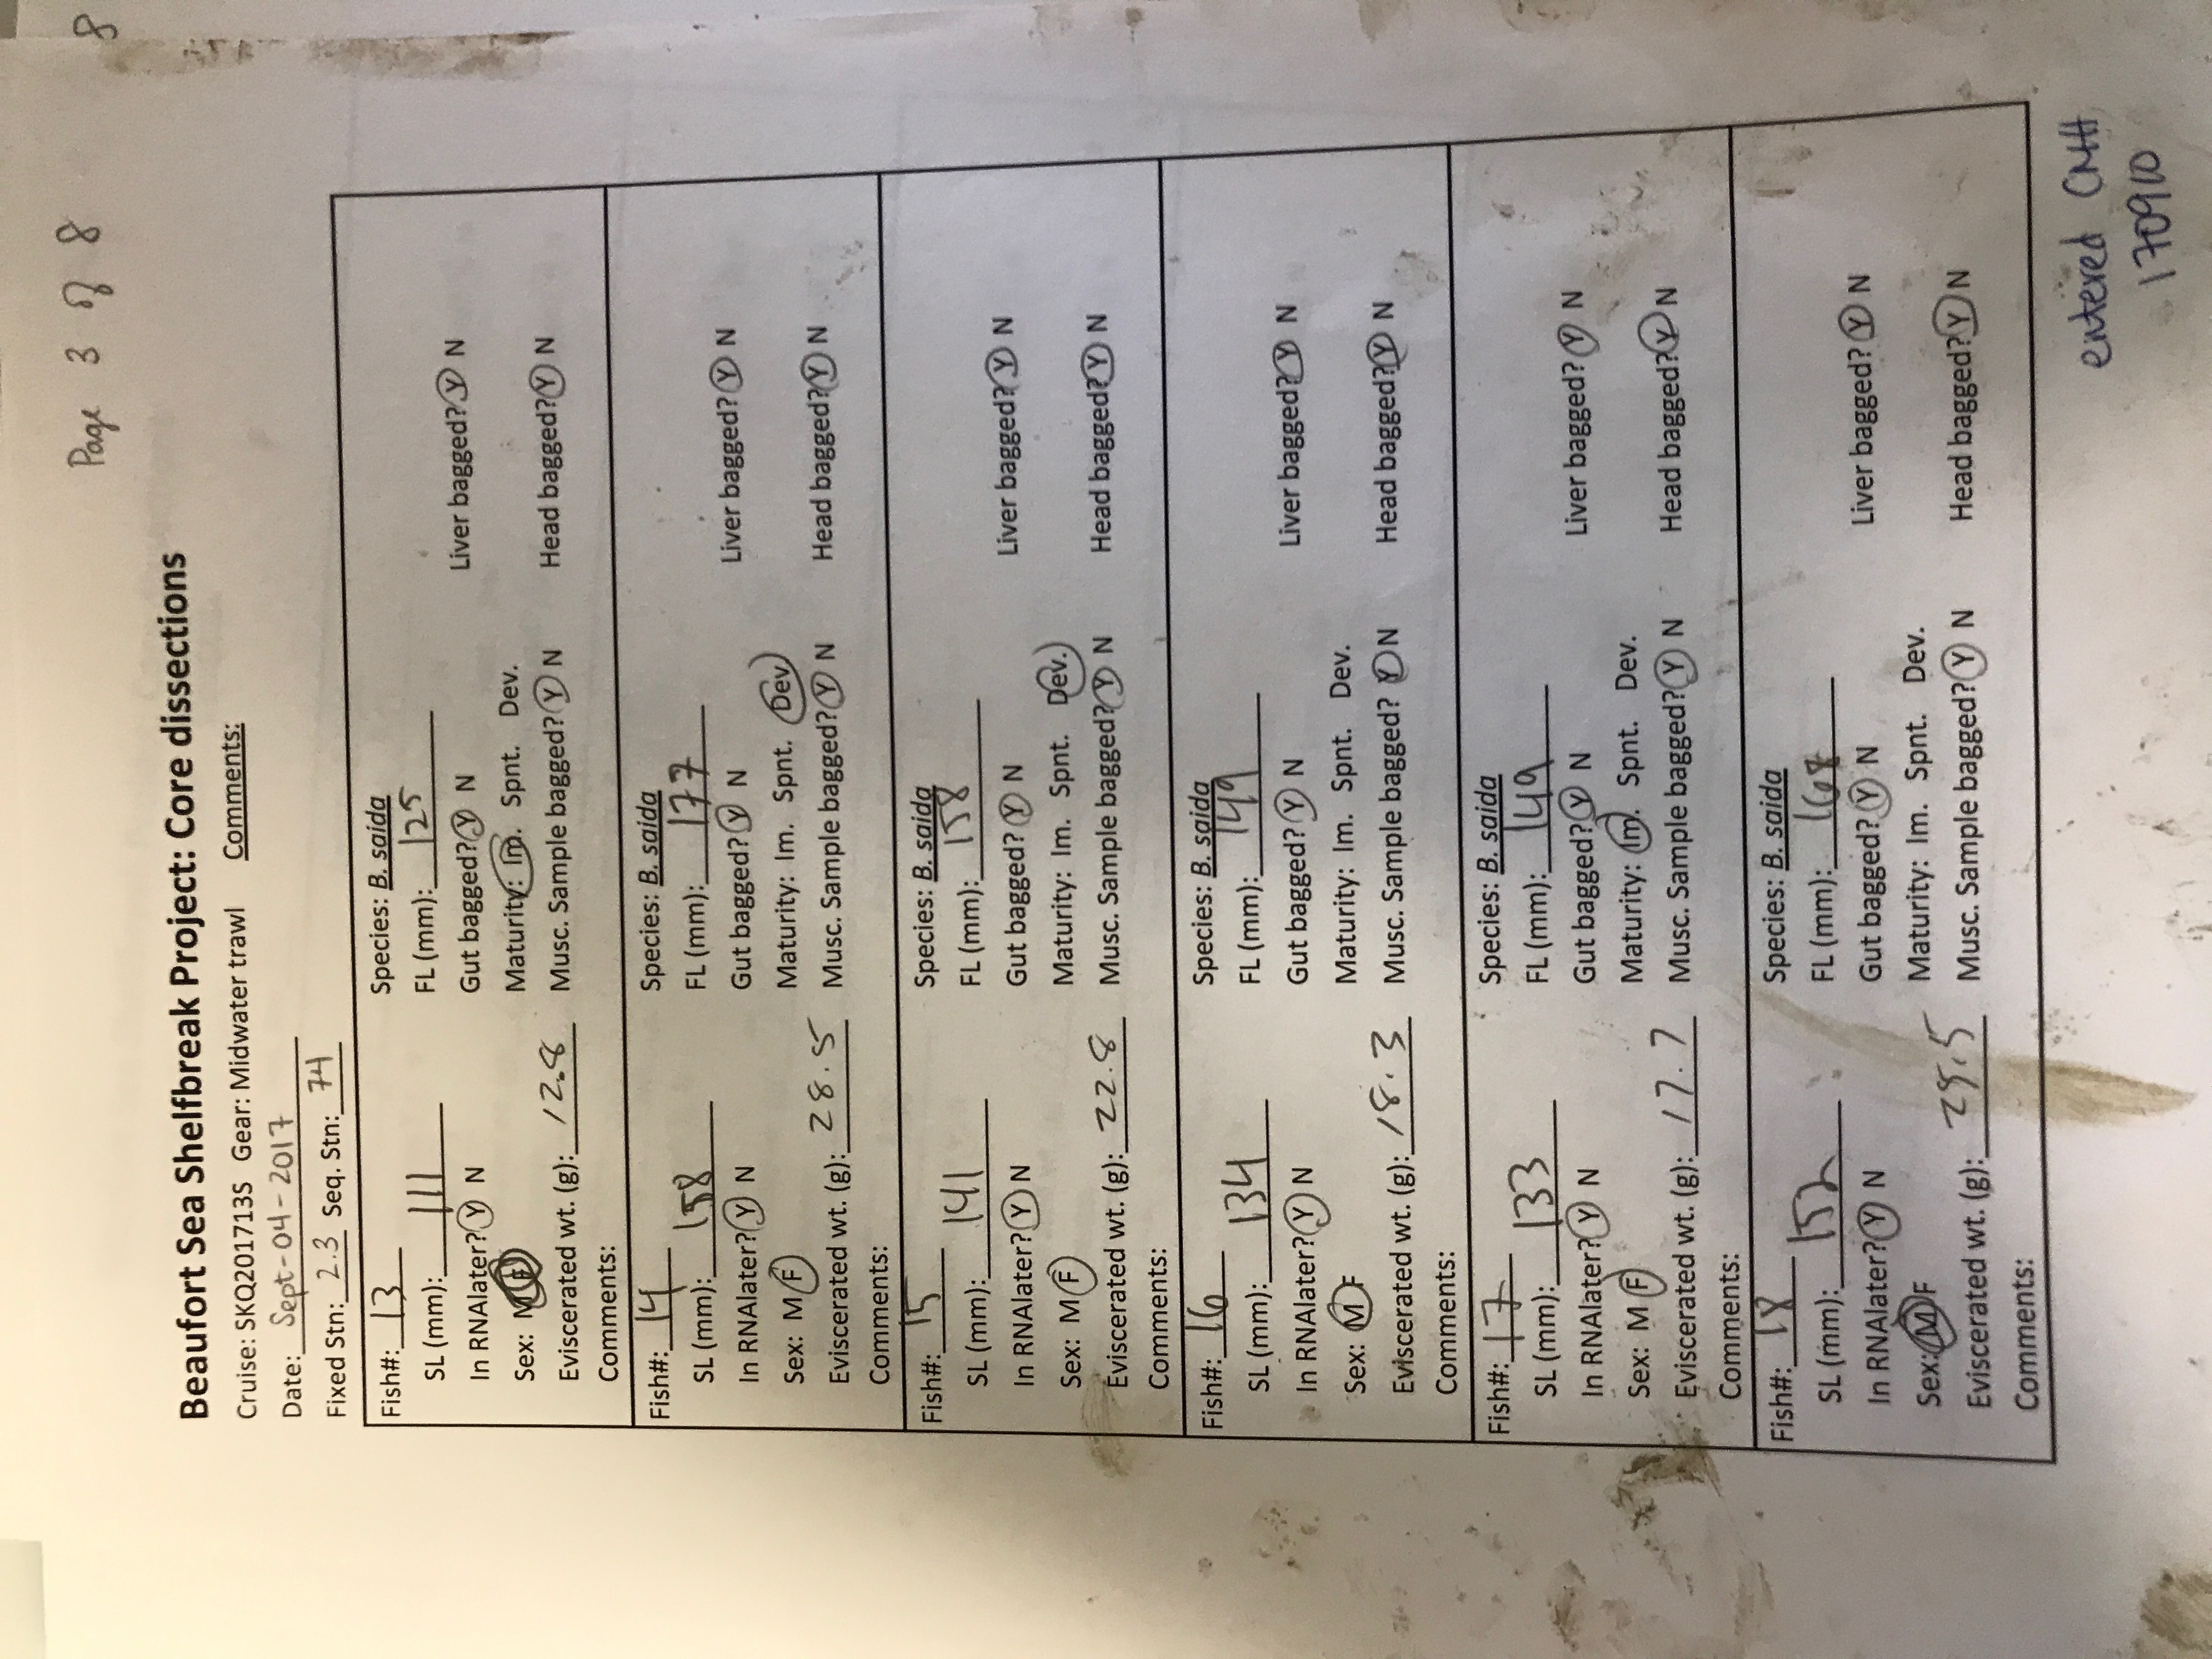 8
Page 3 of 8
Beaufort Sea Shelfbreak Project: Core dissections
Cruise: SKQ201713S Gear: Midwater trawl Comments:
Date: Sept-04-2017
Fixed Stn: 2.3 Seq. Stn: 74
Fish#: 13 Species: B. saida
SL (mm): 111 FL (mm): 125
In RNAlater? Y N Gut bagged? Y N Liver bagged? Y N
Sex: M F Maturity: Im. Spnt. Dev.
Eviscerated wt. (g): 12.8 Musc. Sample bagged? Y N Head bagged? Y N
Comments:
Fish#: 14 Species: B. saida
SL (mm): 158 FL (mm): 177
In RNAlater? Y N Gut bagged? Y N Liver bagged? Y N
Sex: M F Maturity: Im. Spnt. Dev.
Eviscerated wt. (g): 28.5 Musc. Sample bagged? Y N Head bagged? Y N
Comments:
Fish#: 15 Species: B. saida
SL (mm): 141 FL (mm): 158
In RNAlater? Y N Gut bagged? Y N Liver bagged? Y N
Sex: M F Maturity: Im. Spnt. Dev.
Eviscerated wt. (g): 22.8 Musc. Sample bagged? Y N Head bagged? Y N
Comments:
Fish#: 16 Species: B. saida
SL (mm): 134 FL (mm): 149
In RNAlater? Y N Gut bagged? Y N Liver bagged? Y N
Sex: M F Maturity: Im. Spnt. Dev.
Eviscerated wt. (g): 18.3 Musc. Sample bagged? Y N Head bagged? Y N
Comments:
Fish#: 17 Species: B. saida
SL (mm): 133 FL (mm): 149
In RNAlater? Y N Gut bagged? Y N Liver bagged? Y N
Sex: M F Maturity: Im. Spnt. Dev.
Eviscerated wt. (g): 17.7 Musc. Sample bagged? Y N Head bagged? Y N
Comments:
Fish#: 18 Species: B. saida
SL (mm): 152 FL (mm): 168
In RNAlater? Y N Gut bagged? Y N Liver bagged? Y N
Sex: M F Maturity: Im. Spnt. Dev.
Eviscerated wt. (g): Musc. Sample bagged? Y N Head bagged? Y N
Comments:
entered CNH
170910